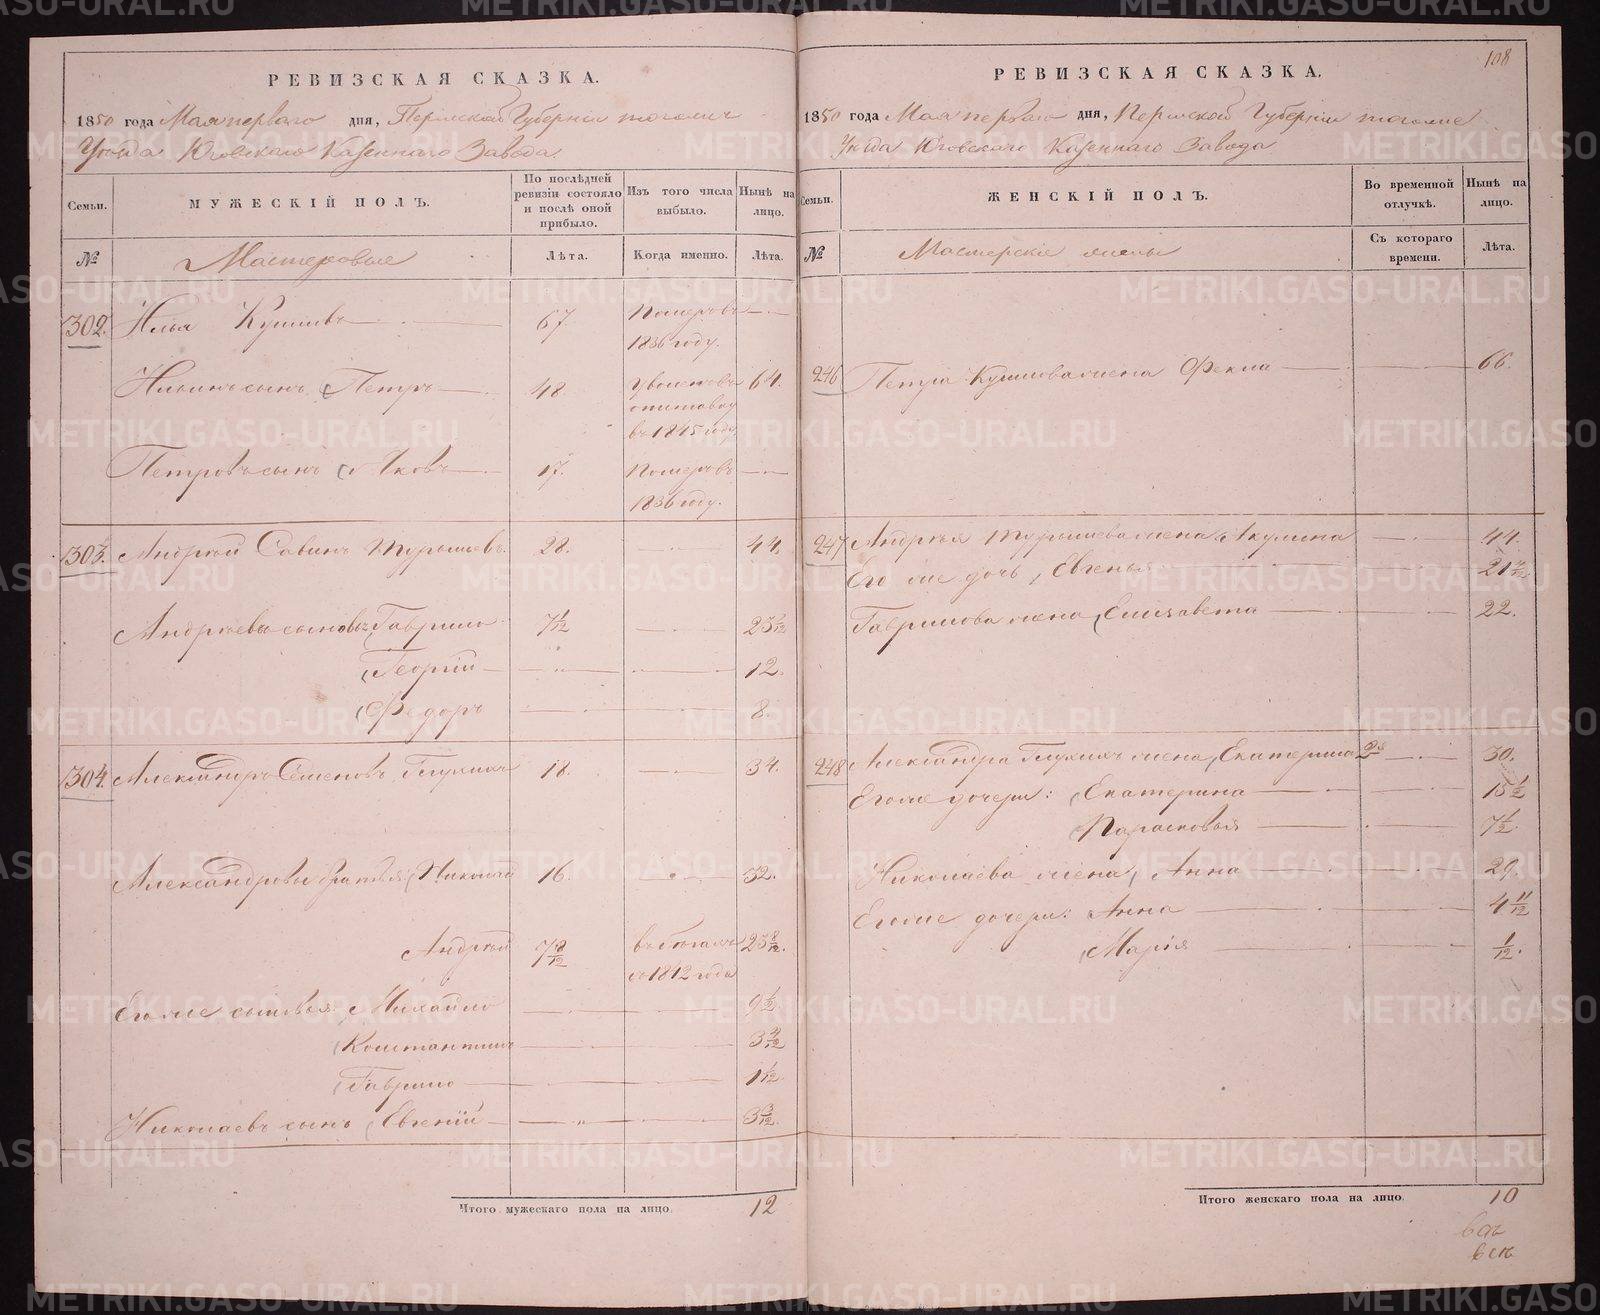 108
РЕВИЗСКАЯ СКАЗКА.
1850 года Мая перваго дня, Пермской Губернiи тогожъ
Уѣзда Юговскаго Казеннаго Завода
Семьи. МУЖЕСКІЙ ПОЛЪ. По послѣдней ревизіи состояло и послѣ оной прибыло. Изъ того числа выбыло. Нынѣ на лицо.
№ Мастеровые Лѣта. Когда именно. Лѣта.
302. Илья 67. Померъ въ 1836 году.
Ильинъ сынъ Петръ 48. Уволенъ въ отставку въ 1845 году 64.
Петровъ сынъ Яковъ 17. Померъ въ 1836 году.
303. Андрей Савинъ Турышевъ 28. 44.
Андреевы сыновья Гаврило 7 1/2 23 1/2
Георгій 12.
Федоръ 8.
304. Александръ Семеновъ Глухихъ 18. 34.
Александровы братья Николай 16. 32.
Андрей 7 8/12 въ бѣгахъ со 1842 года 23 8/12.
Его же сыновья: Михайло 9 1/2
Константинъ
Гаврило 1 1/2
Николаевъ сынъ Евгеній 3 3/12.
Итого мужескаго пола на лицо. 12
РЕВИЗСКАЯ СКАЗКА.
1850 года Мая перваго дня, Пермской Губерніи тогоже
Уѣзда Юговскаго Казеннаго Завода
Семьи. ЖЕНСКІЙ ПОЛЪ. Во временной отлучкѣ. Нынѣ на лицо.
№ Мастерскіе жены Съ котораго времени. Лѣта.
246 Петра жена Фекла 66.
247 Андрея Турышева жена Акулина 44.
Его же дочь, Евгенья
Гаврилова жена, Елизавета 22.
248 Александра Глухихъ жена, Екатерина 30.
Его же дочери: Екатерина 15 1/2
Парасковья 7 1/2.
Николаева жена, Анна 29.
Его же дочери: Анна 4 11/12
Марія 1/12.
Итого женскаго пола на лицо. 10